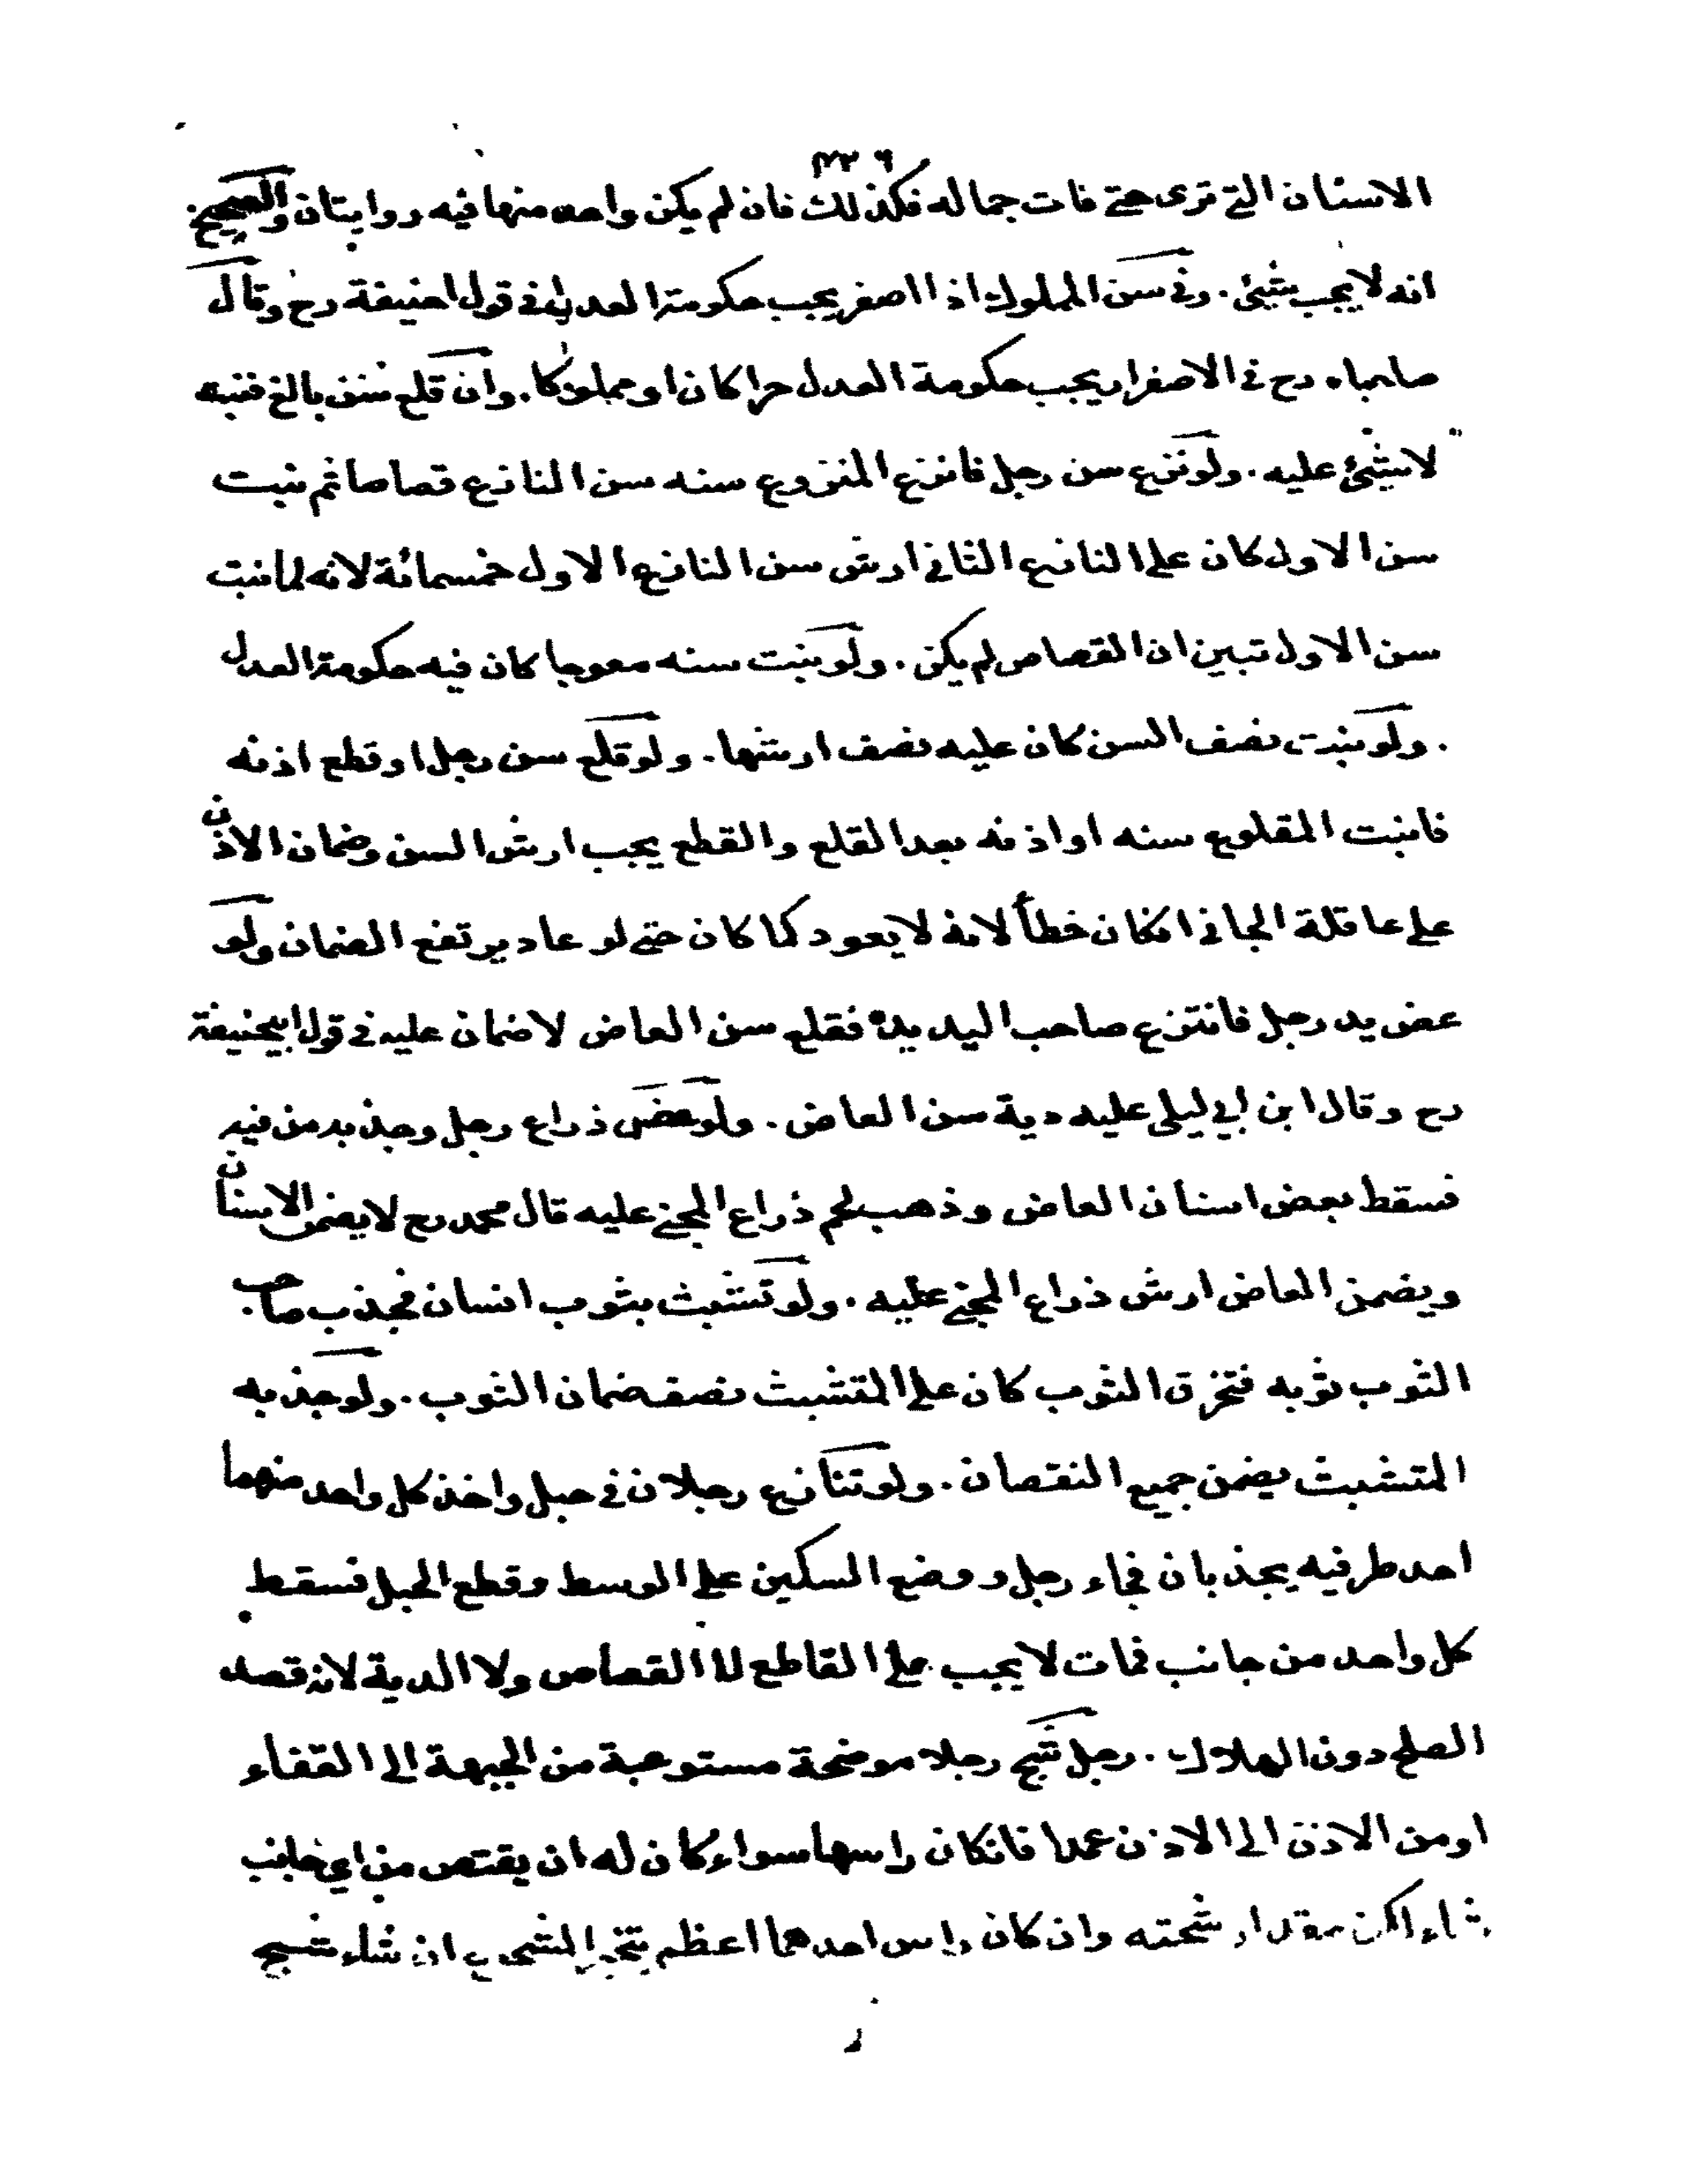 ٤٣٦
الاسنان التے ترى حتے فات جماله فكذلك فان لم يكن واحد منها فيه روايتان والصحيح
انه لا يجب شئ . وفى سن المملوك اذا اصفر يجب حكومة العدل فى قول احنيفة رح وقال
صاحباه رح فى الاصفرار يجب حكومة العدل حرا كان او مملوكا . وان قلع سن بالغ فنبت
لا شئ عليه . ولو نزع سن رجل فانتزع المنزوع سنه سن النازع قصاصا ثم نبت
سن الاول كان على النازع الثانى ارش سن النازع الاول خمسمائة لانه لما نبت
سن الاول تبين ان القصاص لم يكن . ولو نبت سنه معوجا كان فيه حكومة العدل
. ولو نبت نصف السن كان عليه نصف ارشها . ولو قلع سن رجل او قطع اذنه
فانبت المقلوع سنه او اذنه بعد القلع والقطع يجب ارش السن وضمان الاذن
على عاقلة الجانى انكان خطأ لانه لا يعود كما كان حتى لو عاد يرتفع الضمان ولو
عض يد رجل فانتزع صاحب اليد يده فقلع سن العاض لا ضمان عليه فى قول ابيحنيفة
رح وقال ابن ابي ليلى عليه دية سن العاض . ولو عض ذراع رجل وجذبه من فيه
فسقط بعض اسنان العاض وذهب لحم ذراع المجنى عليه قال محمد رح لا يضمن الاسنان
ويضمن العاض ارش ذراع المجنى عليه . ولو تشبث بثوب انسان فجذب صاحب
الثوب ثوبه فتخرق الثوب كان على المتشبث نصف ضمان الثوب . ولو جذبه
المتشبث يضمن جميع النقصان . ولو تنازع رجلان فى حبل واخذ كل واحد منهما
احد طرفيه يجذبان فجاء رجل ووضع السكين على الوسط وقطع الحبل فسقط
كل واحد من جانب فمات لا يجب على القاطع لا القصاص ولا الدية لانه قصد
الصلح دون الهلاك . رجل شج رجلا موضحة مستوعبة من الجبهة الى القفاء
او من الاذن الى الاذن عمدا فانكان راسها سواء كان له ان يقتص من اي جانب
شاء لكن مقدار شجته وان كان راس احدهما اعظم يتخير المشجوج ان شاء شج